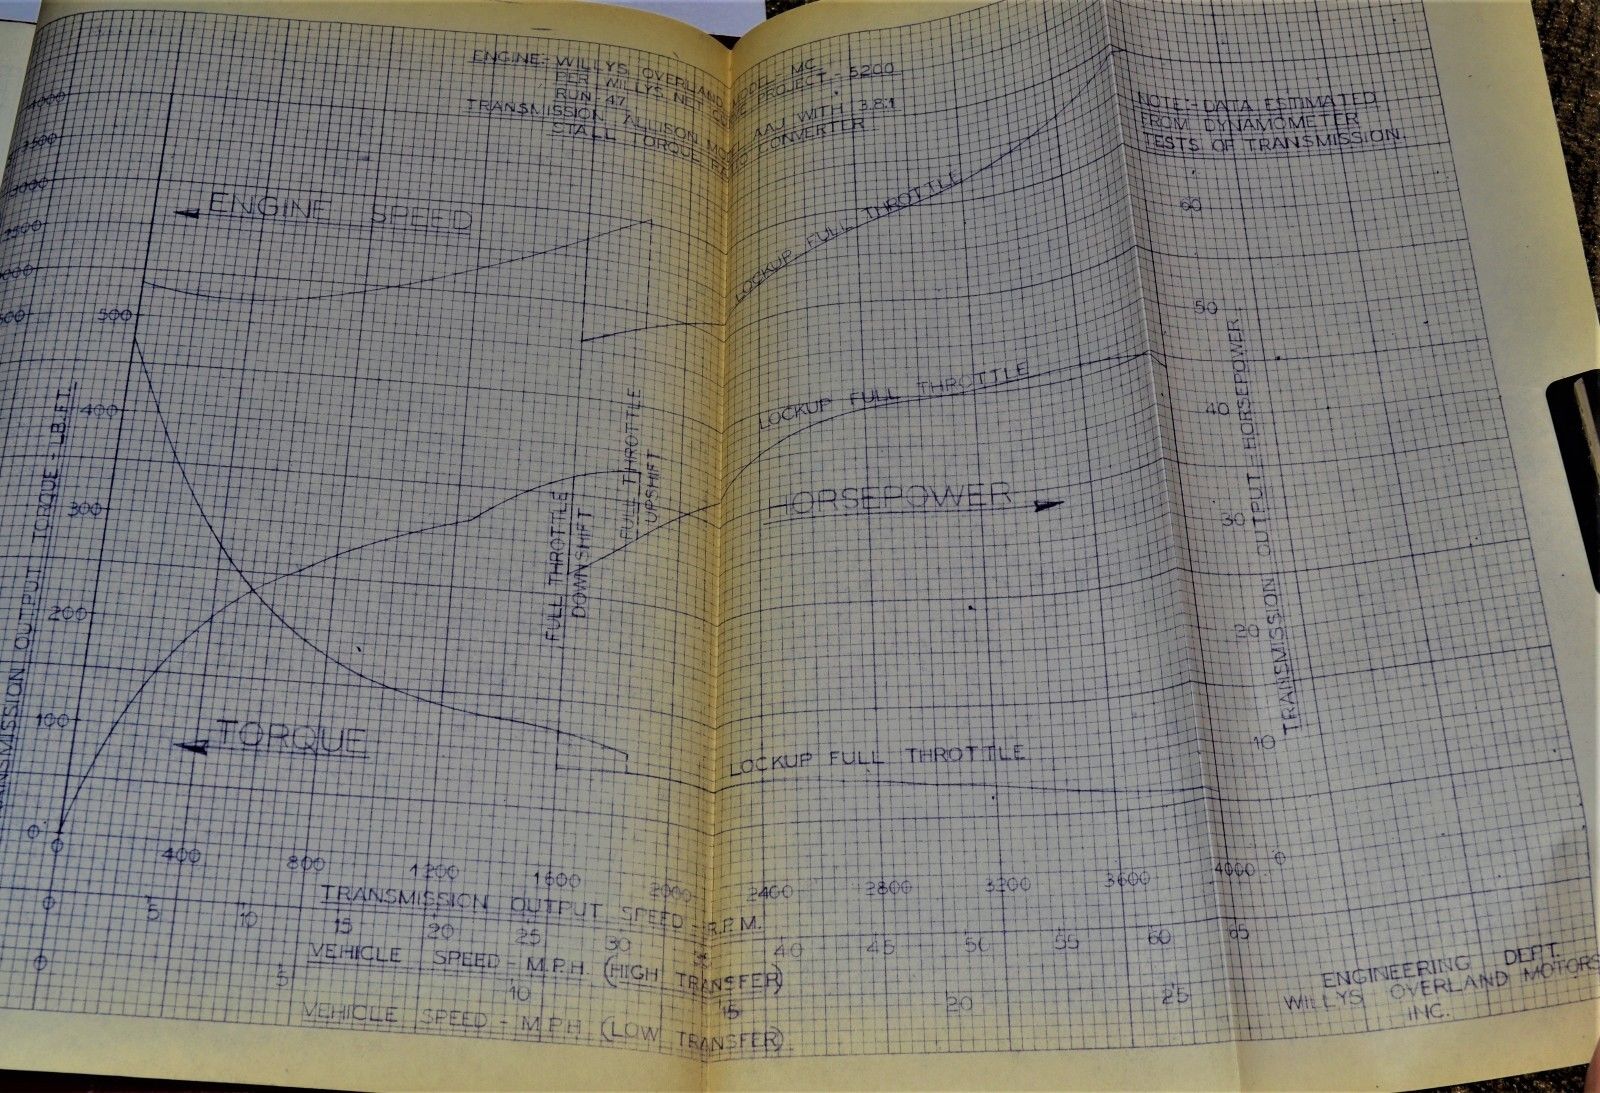 ENGINE:- WILLYS OVERLAND MODEL- MC
PER WILLYS NET PROJECT - 5200
RUN 47
TRANSMISSION ALLISON AAJ WITH 3.8:1
STALL TORQUE CONVERTER
NOTE:- DATA ESTIMATED
FROM DYNAMOMETER
TESTS OF TRANSMISSION.
ENGINE SPEED
LOCKUP FULL THROTTLE
4000
3500
3000
2500
500
400
300
200
100
0
TRANSMISSION OUTPUT TORQUE - LB.FT.
LOCKUP FULL THROTTLE
HORSEPOWER
FULL THROTTLE
DOWNSHIFT
FULL THROTTLE
UPSHIFT
TORQUE
LOCKUP FULL THROTTLE
60
50
40
30
20
10
0
TRANSMISSION OUTPUT HORSEPOWER
0 400 800 1200 1600 2000 2400 2800 3200 3600 4000
TRANSMISSION OUTPUT SPEED - R.P.M.
0 5 10 15 20 25 30 40 45 50 55 60 65
VEHICLE SPEED - M.P.H. (HIGH TRANSFER)
0 5 10 15 20 25
VEHICLE SPEED - M.P.H. (LOW TRANSFER)
ENGINEERING DEPT.
WILLYS OVERLAND MOTORS
INC.